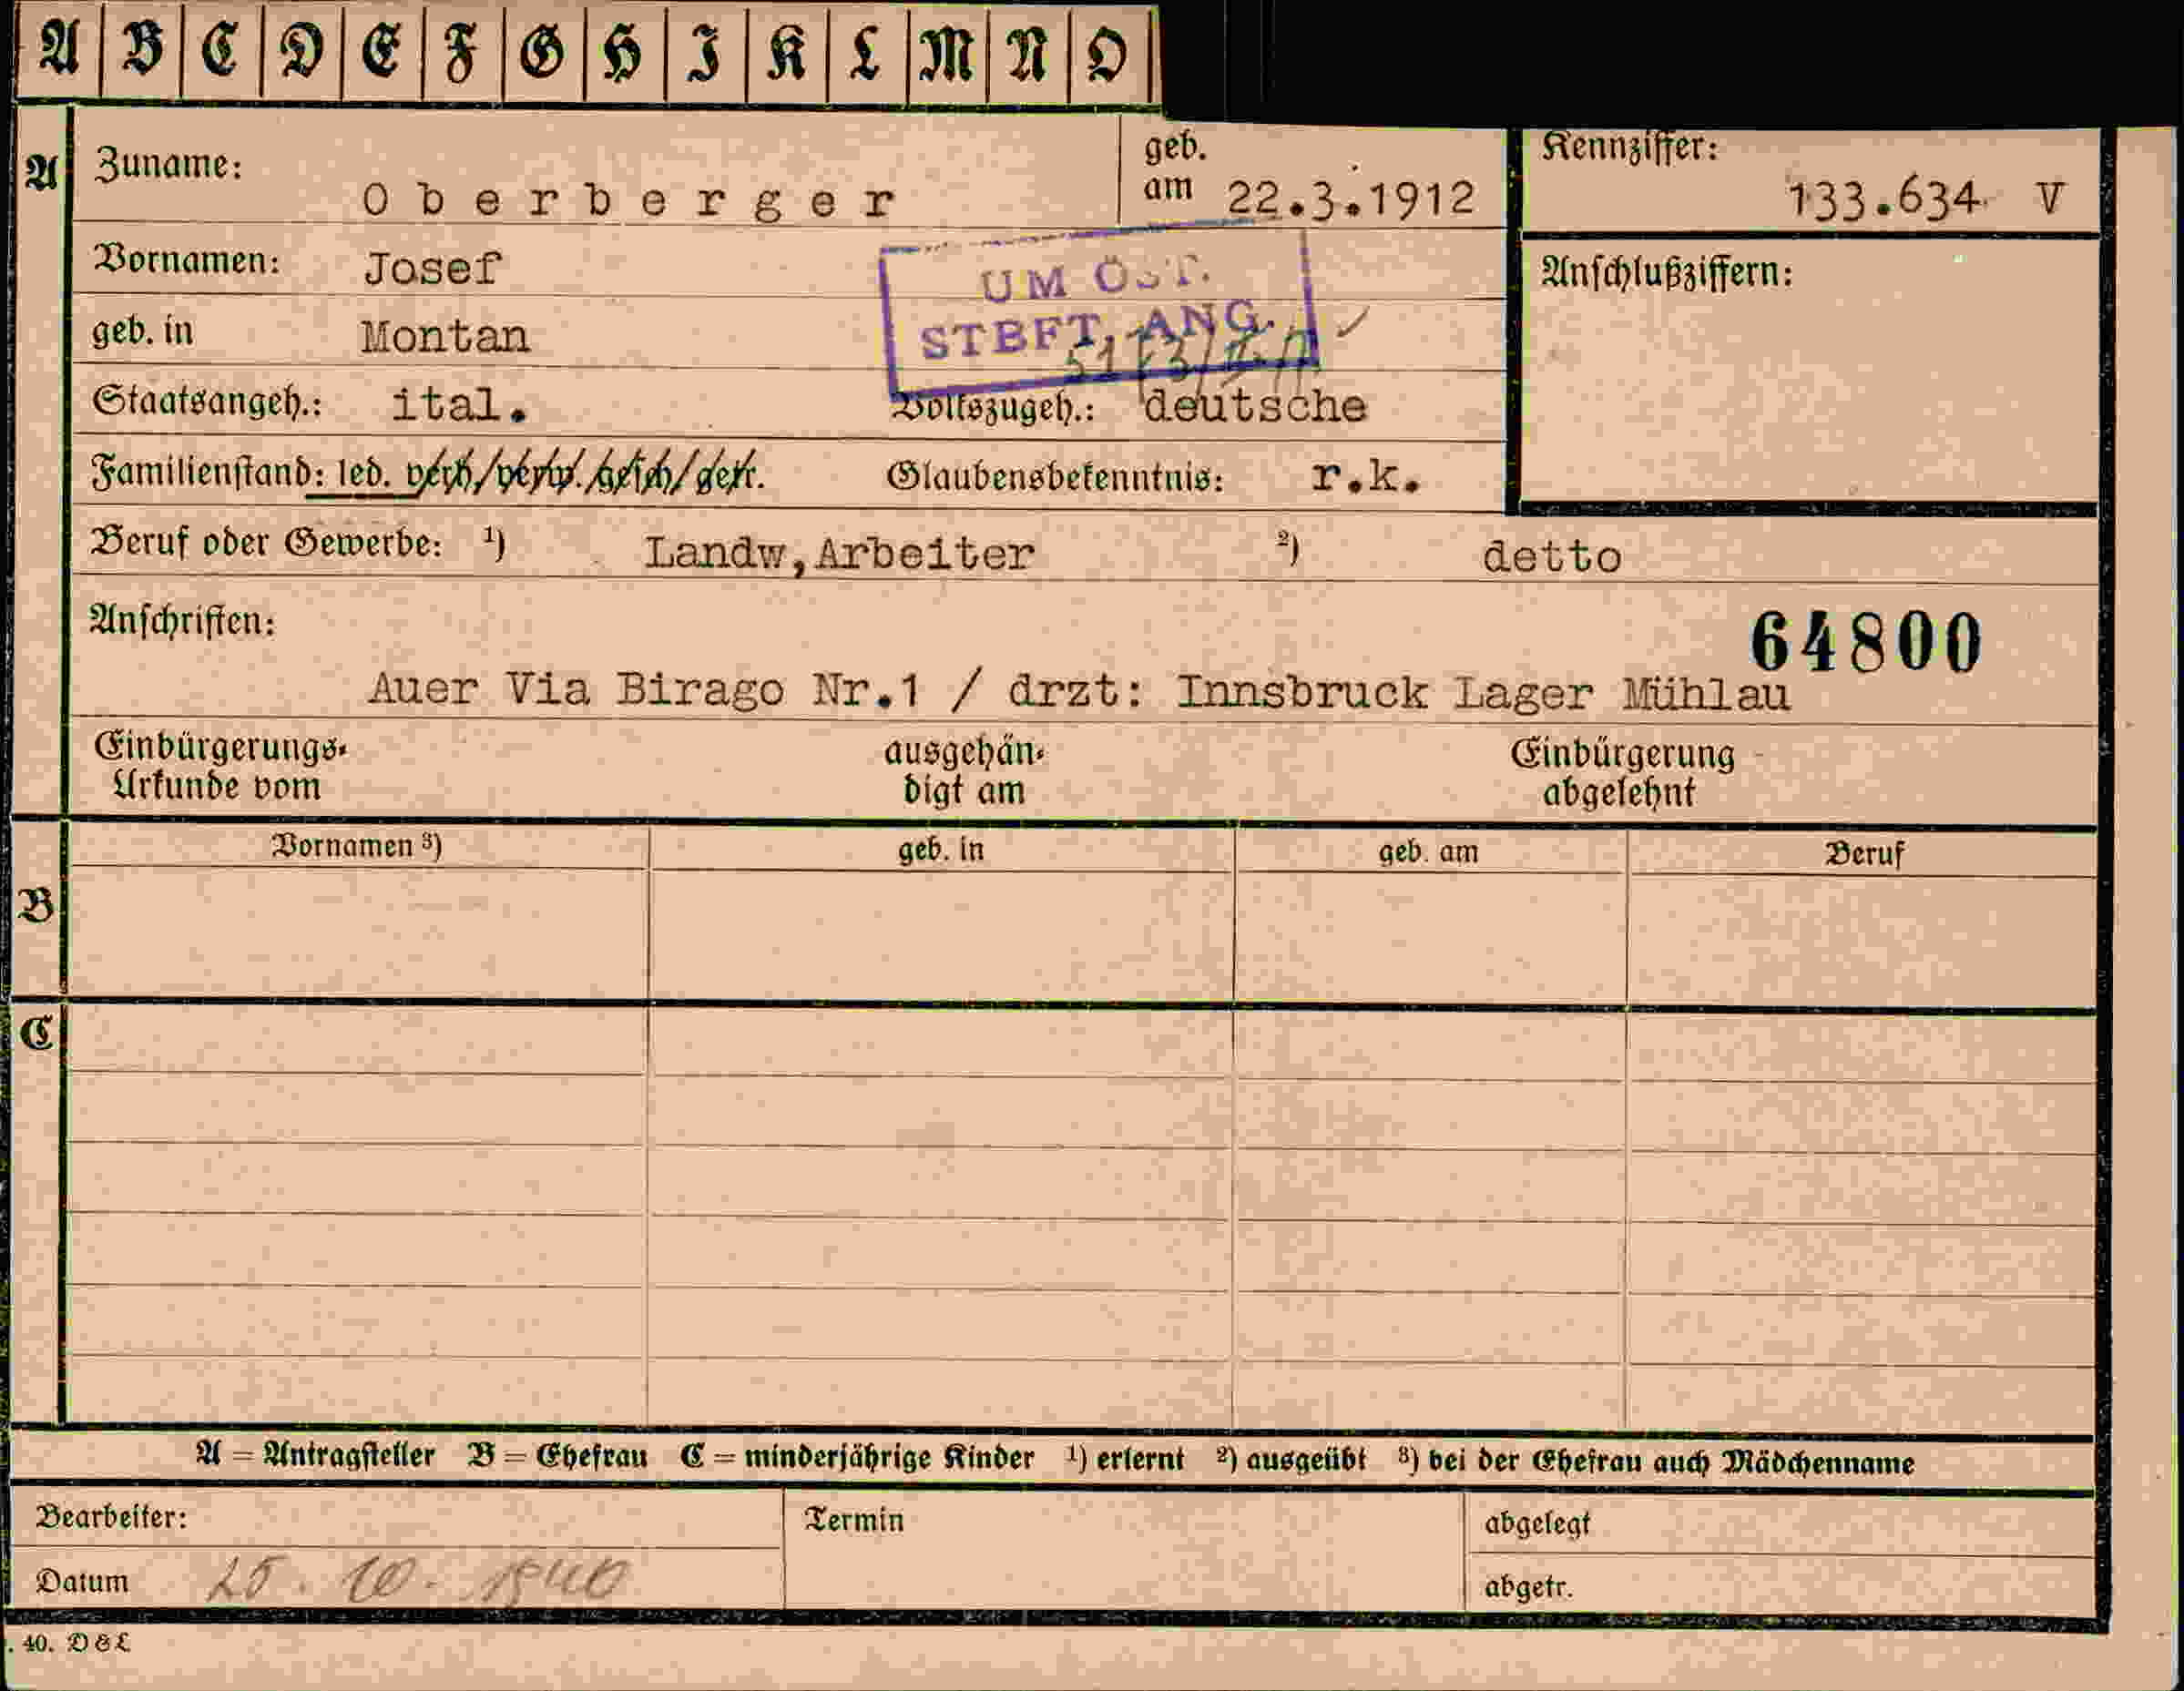 A B C D E F G H I K L M N O
A
Zuname: Oberberger
geb. am 22.3.1912
Kennziffer: 133.634 V
Vornamen: Josef
UM ÖST.
STBFT. ANG.
Anschlußziffern:
geb. in Montan
Staatsangeh.: ital.
Volkszugeh.: deutsche
Familienstand: led. verh./verw./gesch/getr.
Glaubensbekenntnis: r.k.
Beruf oder Gewerbe: ¹) Landw,Arbeiter ²) detto
Anschriften:
64800
Auer Via Birago Nr.1 / drzt: Innsbruck Lager Mühlau
Einbürgerungs-
Urkunde vom
ausgehän-
digt am
Einbürgerung
abgelehnt
Vornamen ³) geb. in geb. am Beruf
B
C
A = Antragsteller B = Ehefrau C = minderjährige Kinder ¹) erlernt ²) ausgeübt ³) bei der Ehefrau auch Mädchenname
Bearbeiter:
Termin
abgelegt
Datum 25. 10. 1940
abgetr.
. 40. D & L